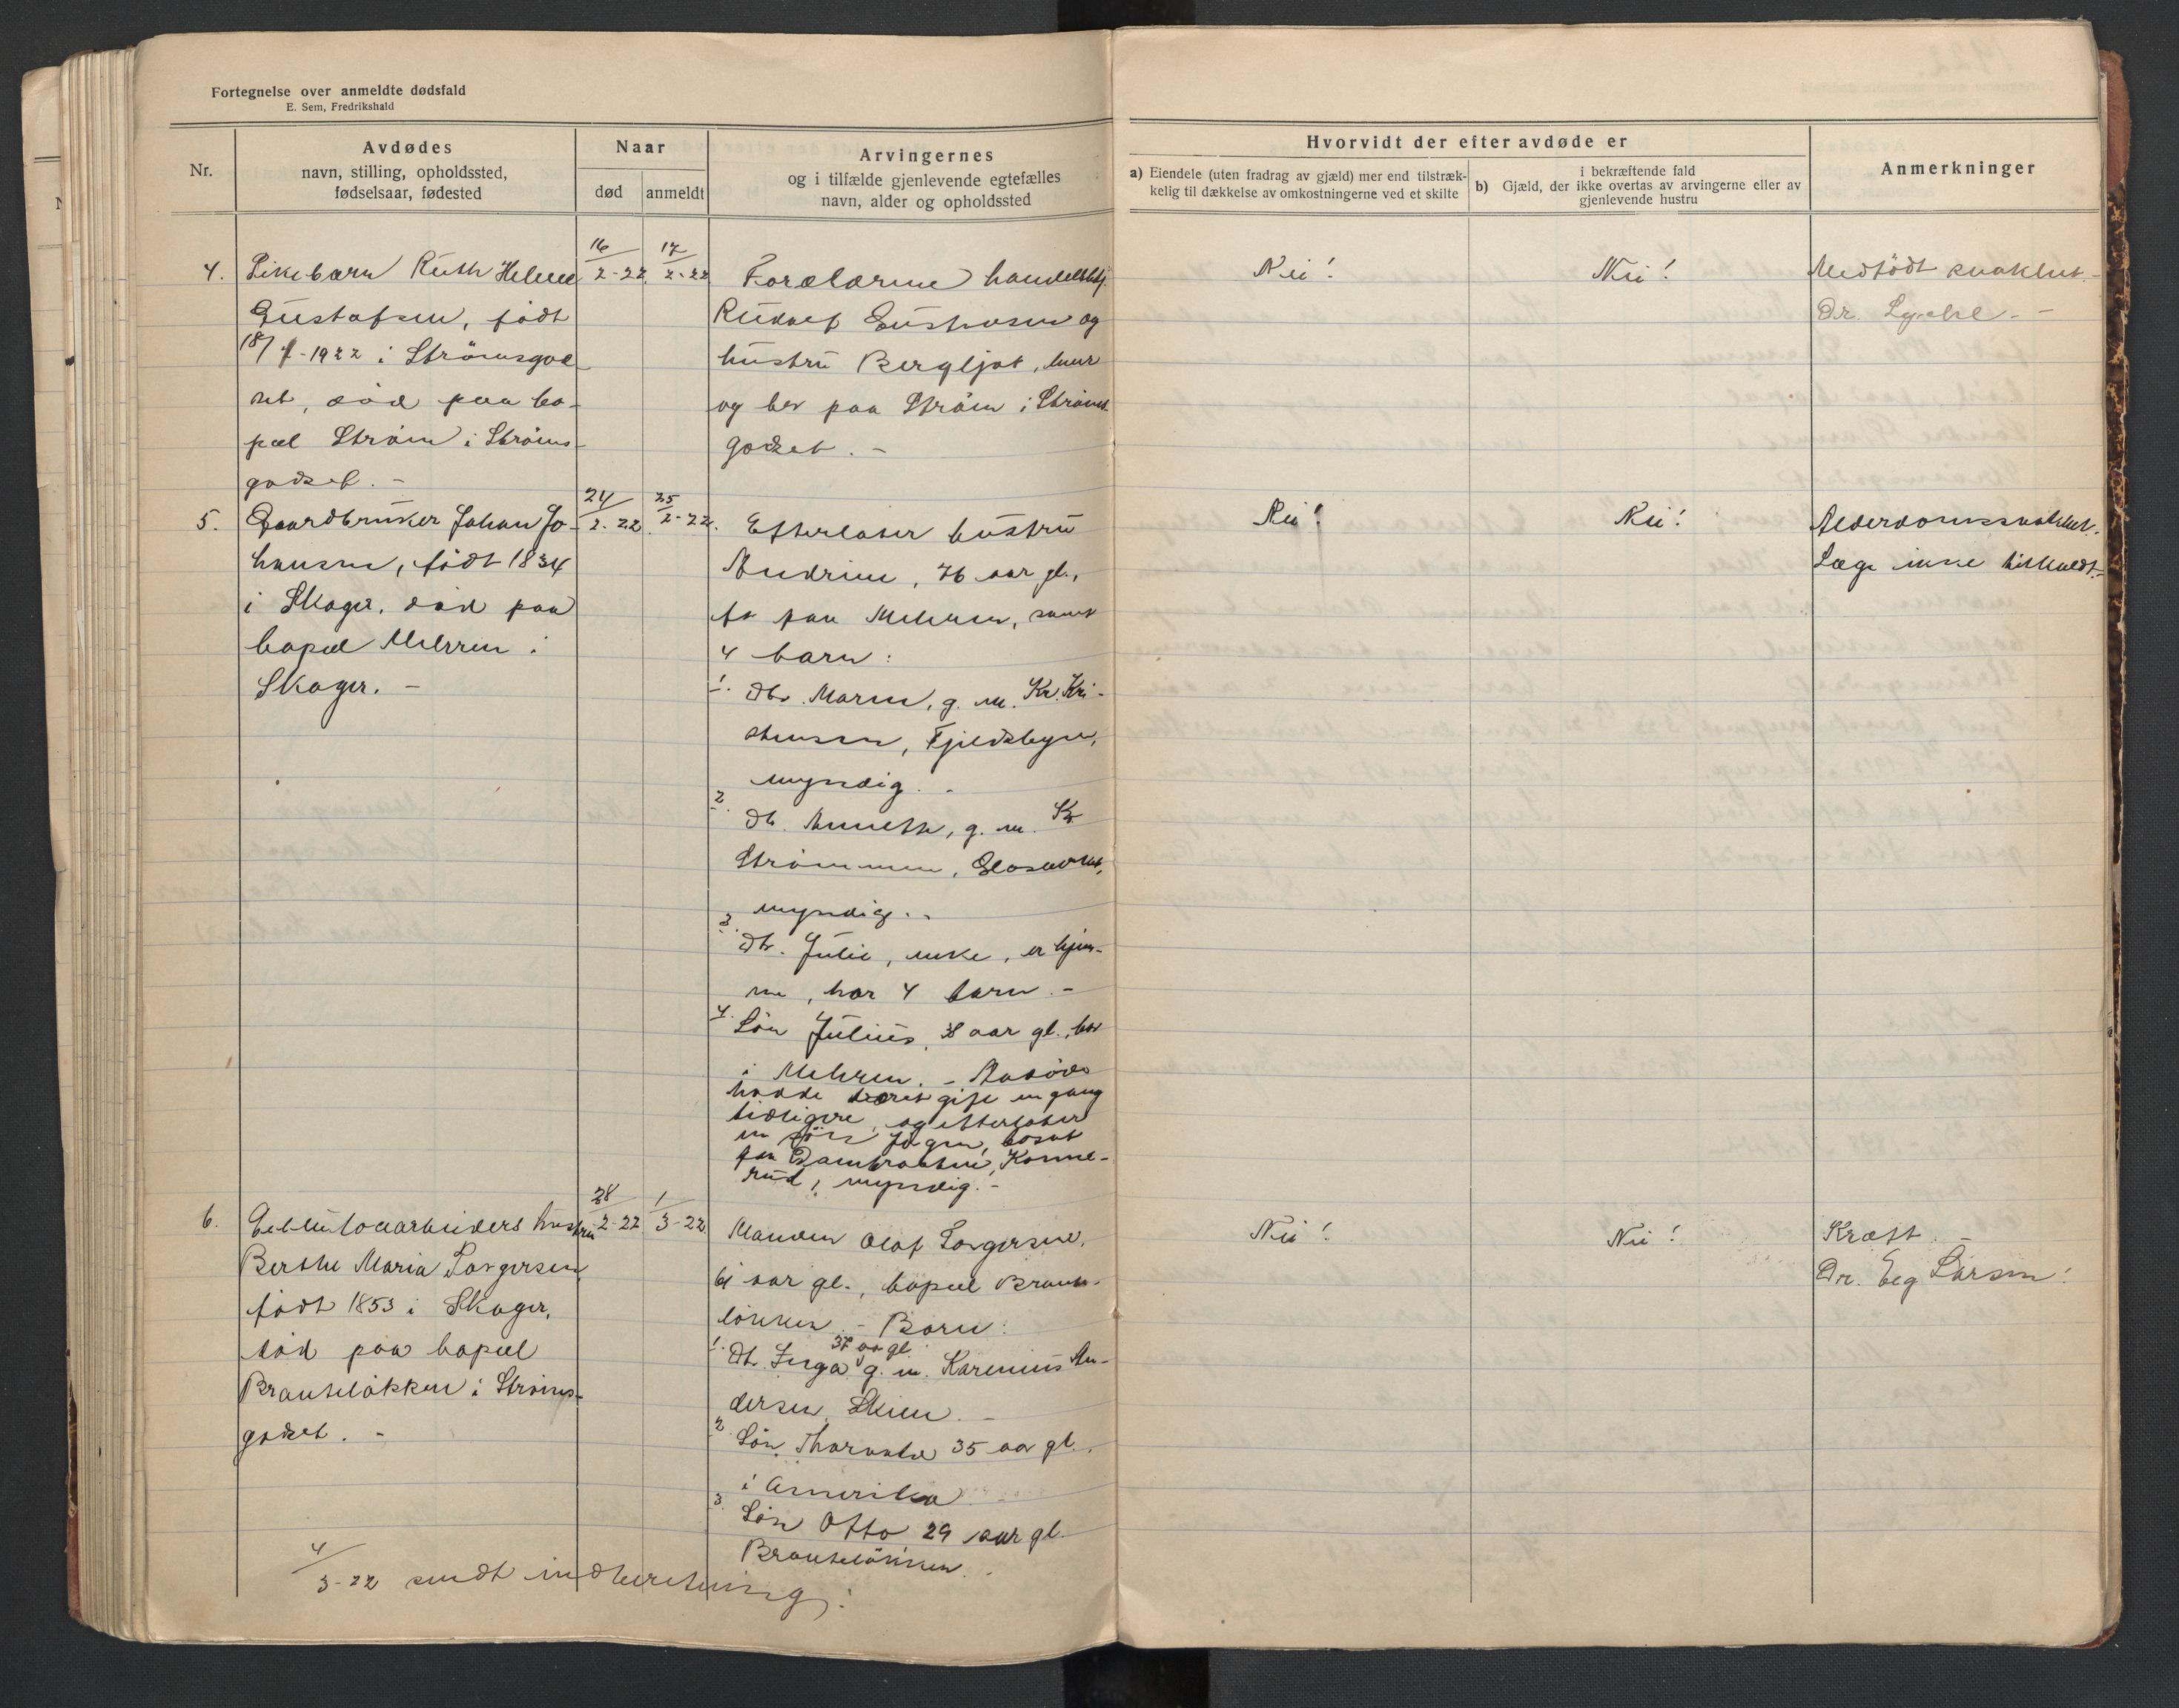 Fortegnelse over anmeldte dødsfald
E. Sem, Fredrikshald
Nr.
Avdødes
navn, stilling, opholdssted,
fødselsaar, fødested
Naar
død
anmeldt
Arvingernes
og i tilfælde gjenlevende egtefælles
navn, alder og opholdssted
Hvorvidt der efter avdøde er
a) Eiendele (uten fradrag av gjæld) mer end tilstræk-
kelig til dækkelse av omkostningerne ved et skilte
i bekræftende fald
b) Gjæld, der ikke overtas av arvingerne eller av
gjenlevende hustru
Anmerkninger
4.
Pikebarn Ruth Helene
Gustafsen, født
18/1-1922 i Strømsgod-
set, død paa bo-
pæl Strøm i Strøms-
godset. -
16/2-22.
17/2-22
Forældrene handelsbtj.
Rudolf Gustavsen og
hustru Bergljot, lever
og bor paa Strøm i Strøms-
godset. -
Nei!
Nei!
Medfødt svakhet -
Dr. Lyche. -
5.
Gaardbruker Johan Jo-
hansen, født 1834
i Skoger, død paa
bopæl Mehren i
Skoger. -
24/2-22.
25/2-22.
Efterlater hustru
Andrine, 76 aar gl.,
bo paa Mehren, samt
4 barn:
1. Dtr. Maren, g. m. Kr. Kri-
stensen, Fjeldsbyen,
myndig. -
2. Dt. Annette, g. m. Kr.
Strømmen, Glasverket,
myndig. -
3. Dtr. Julie, enke, er hjem-
me, har 4 barn. -
4. Søn Julius, 38 aar gl., bor
i Mehren. - Avdøde
hadde været gift en gang
tidligere, og efterlater
en søn Jørgen, bosat
paa Dambraaten, Konne-
rud, myndig. -
Nei!
Nei!
Alderdomssvakhet.
Læge ikke tilkaldt. -
6.
Cellulosearbeiders hustru
Berthe Maria Torgersen,
født 1853 i Skoger,
død paa bopæl
Brauteløkken i Strøms-
godset. -
28/2-22
1/3-22.
Manden Olaf Torgersen,
61 aar gl., bopæl Braute-
løkken. - Barn:
1. Dt. Inga 37 aar gl. g. m. Karenius An-
dersen, Skien. -
2. Søn Thorvald 35 aar gl.,
i Amerika. -
3. Søn Otto 29 aar gl.
Brauteløkken. -
Nei!
Nei!
Kræft. -
Dr. Eeg Larsen!
4/3-22 sendt indberetning!